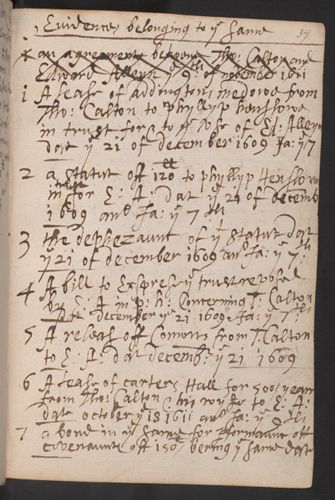 Evidences belonging to yͤ same 37
an agreement betwene Tho: Calton and
Edward Alleyn 9th of november 1611
1 A lease of addingtons medowe from
Tho: Calton to phillyp henslowe
in trust for yͤ use of Ed: Alleyn
dat yͤ 21 of december 1609 Ja: yͤ 7
2 a statut of 120ll to phillyp Henslow
in trust for E: A: dat yͤ 21 of decemb
1609 and Ja: yͤ 7th
3 the defhezaunt of yͤ statut dat
yͤ 21 of december 1609 and Ja: yͤ 7:
4 A bill to Expres yͤ trust reposed
by E: A in p: h: Concerning T: Calton
dat december yͤ 21 1609 Ja: yͤ 7th
5 A release of Comons from T: Calton
to E: A: dat decemb: yͤ 21 1609
6 A lease of carters Hall for 500 years
from Tho: Calton to E: A:
dat october yͤ 18 1611 and Ja: yͤ
7 a bond in yͤ same for pformaunc off
covenaunts off 150 bering yͤ same date